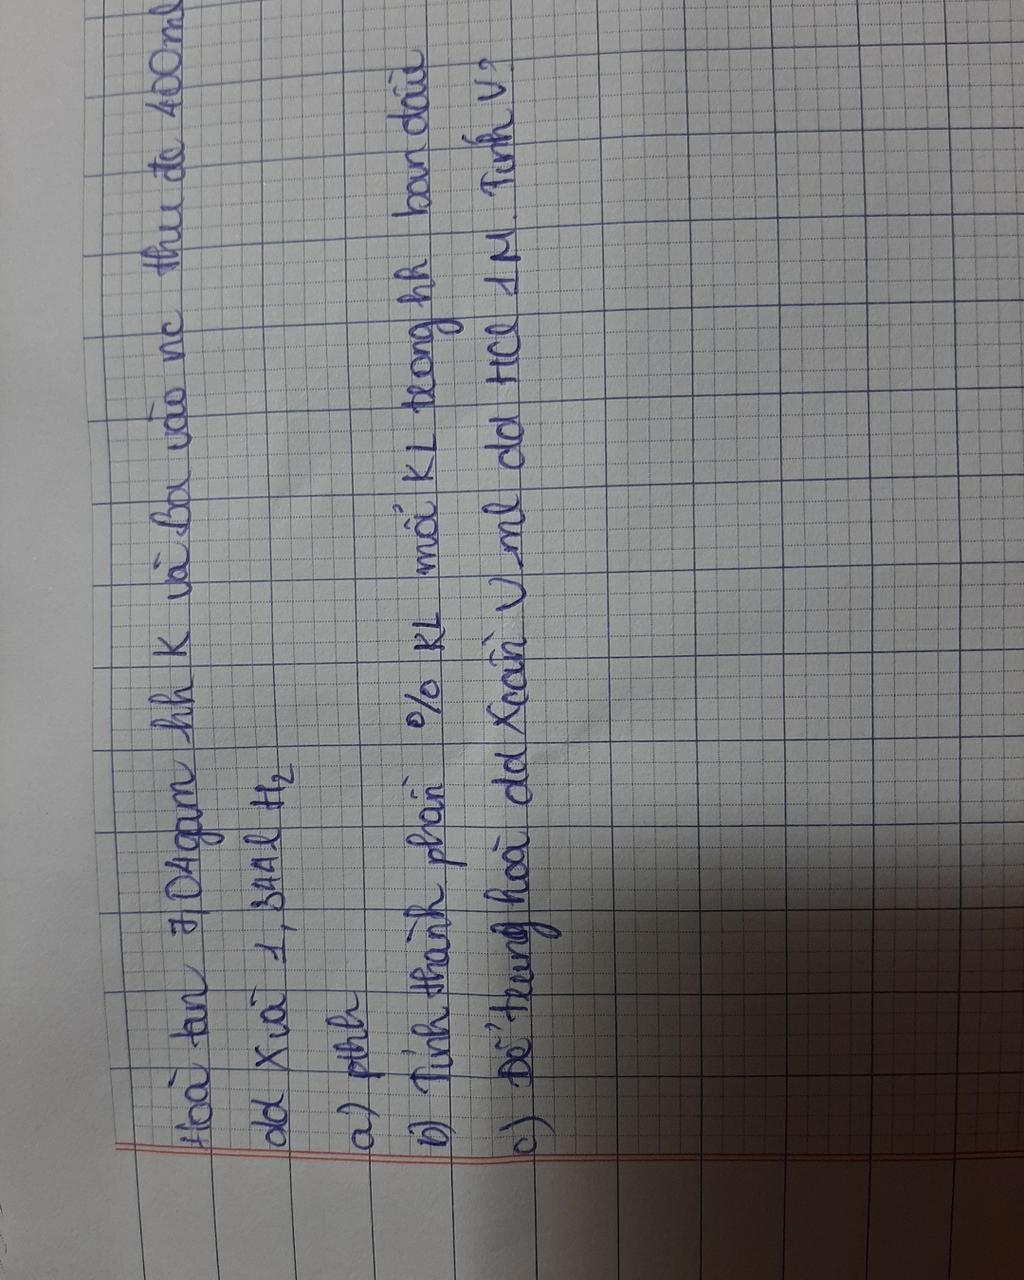 Hoà tan 7,04gam hh K và Ba vào nc thu đc 400ml
dd X và 1,344l H2
a) pthh
b) Tính thành phần % KL mỗi KL trong hh ban đầu
c) Để trung hoà dd X cần V ml dd HCl 1M. Tính V?